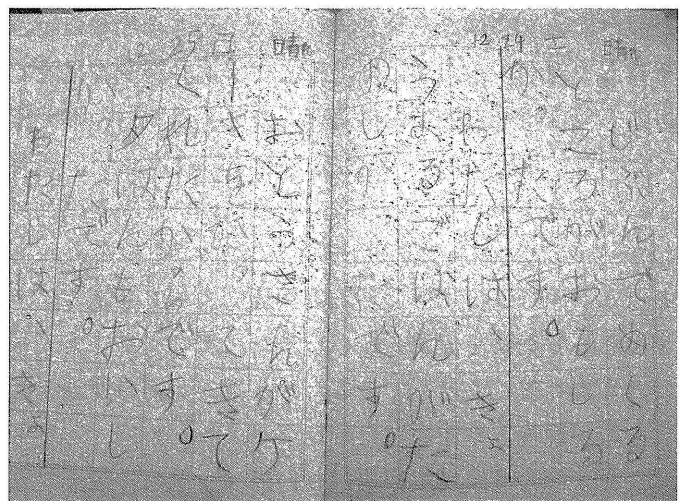 12 24 土 晴れ
じぶんでめくる
ところがおもしろ
かったです。
わたしは、きょ
うよるごはんがた
のしみです。
25 日 晴れ
おとうさんがケ
ーキをかってきて
くれたからです。
夕はんもおいし
かったです。
わたしは、きょ